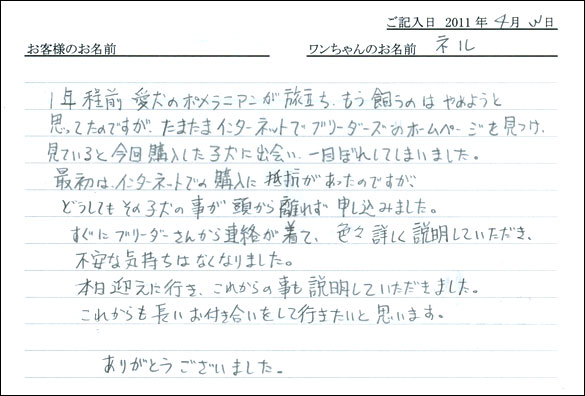 ご記入日 2011年4月3日
お客様のお名前 ワンちゃんのお名前 ネル
1年程前 愛犬のポメラニアンが旅立ち、もう飼うのはやめようと
思ってたのですが、たまたまインターネットでブリーダーズのホームページを見つけ、
見ていると今回購入した子犬に出会い、一目ぼれしてしまいました。
最初は、インターネットでの購入に抵抗があったのですが、
どうしてもその子犬の事が頭から離れず申し込みました。
すぐにブリーダーさんから連絡が着て、色々詳しく説明していただき、
不安な気持ちはなくなりました。
本日迎えに行き、これからの事も説明していただきました。
これからも長いお付き合いをして行きたいと思います。
ありがとうございました。